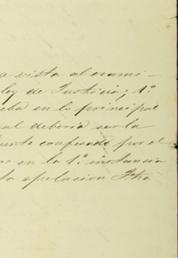 a vista al exami-
ley de Justicia; 1º.
en la principal
al deberia ser la
conferido por el
en la 1ª. instancia
ta apelacion